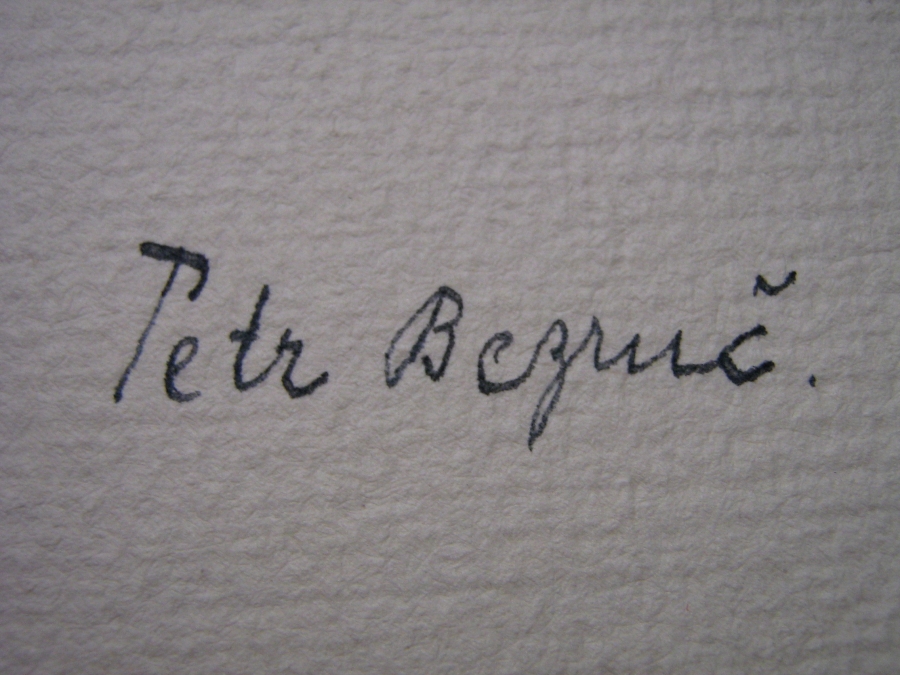 Petr Bezruč.